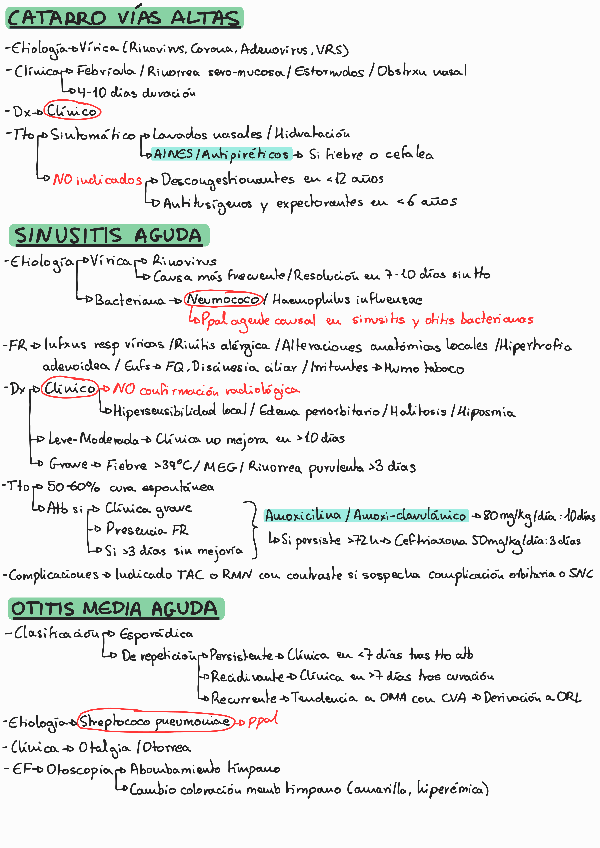 CATARRO VÍAS ALTAS
-Etiología→Vírica (Rinovirus, Corona, Adenovirus, VRS)
-Clínica→Febrícula/Rinorrea sero-mucosa/Estornudos/Obstrxu nasal
→4-10 días duración
-Dx→Clínico
-Tto→Sintomático→Lavados nasales/Hidratación
→AINES/Antipiréticos→Si fiebre o cefalea
→NO indicados→Descongestionantes en <12 años
→Antitusígenos y expectorantes en <6 años
SINUSITIS AGUDA
-Etiología→Vírica→Rinovirus
→Causa más frecuente/Resolución en 7-10 días sin tto
→Bacteriana→Neumococo/Haemophilus influenzae
→Ppal agente causal en sinusitis y otitis bacterianas
-FR→Infxus resp víricas/Rinitis alérgica/Alteraciones anatómicas locales/Hipertrofia
adenoidea/Enfs→FQ, Discinesia ciliar/Irritantes→Humo tabaco
-Dx→Clínico→NO confirmación radiológica
→Hipersensibilidad local/Edema periorbitario/Halitosis/Hiposmia
→Leve-Moderada→Clínica no mejora en >10 días
→Grave→Fiebre >39ºC/MEG/Rinorrea purulenta >3 días
-Tto→50-60% cura espontánea
→Atb si→Clínica grave
→Presencia FR
→Si >3 días sin mejoría
Amoxicilina/Amoxi-clavulánico→80mg/kg/día:10días
→Si persiste >72h→Ceftriaxona 50mg/kg/día:3días
-Complicaciones→Indicado TAC o RMN con contraste si sospecha complicación orbitaria o SNC
OTITIS MEDIA AGUDA
-Clasificación→Esporádica
→De repetición→Persistente→Clínica en <7 días tras tto atb
→Recidivante→Clínica en >7 días tras curación
→Recurrente→Tendencia a OMA con CVA→Derivación a ORL
-Etiología→Streptococo pneumoniae→ppal
-Clínica→Otalgia/Otorrea
-EF→Otoscopia→Abombamiento tímpano
→Cambio coloración memb timpano (amarillo, hiperémica)